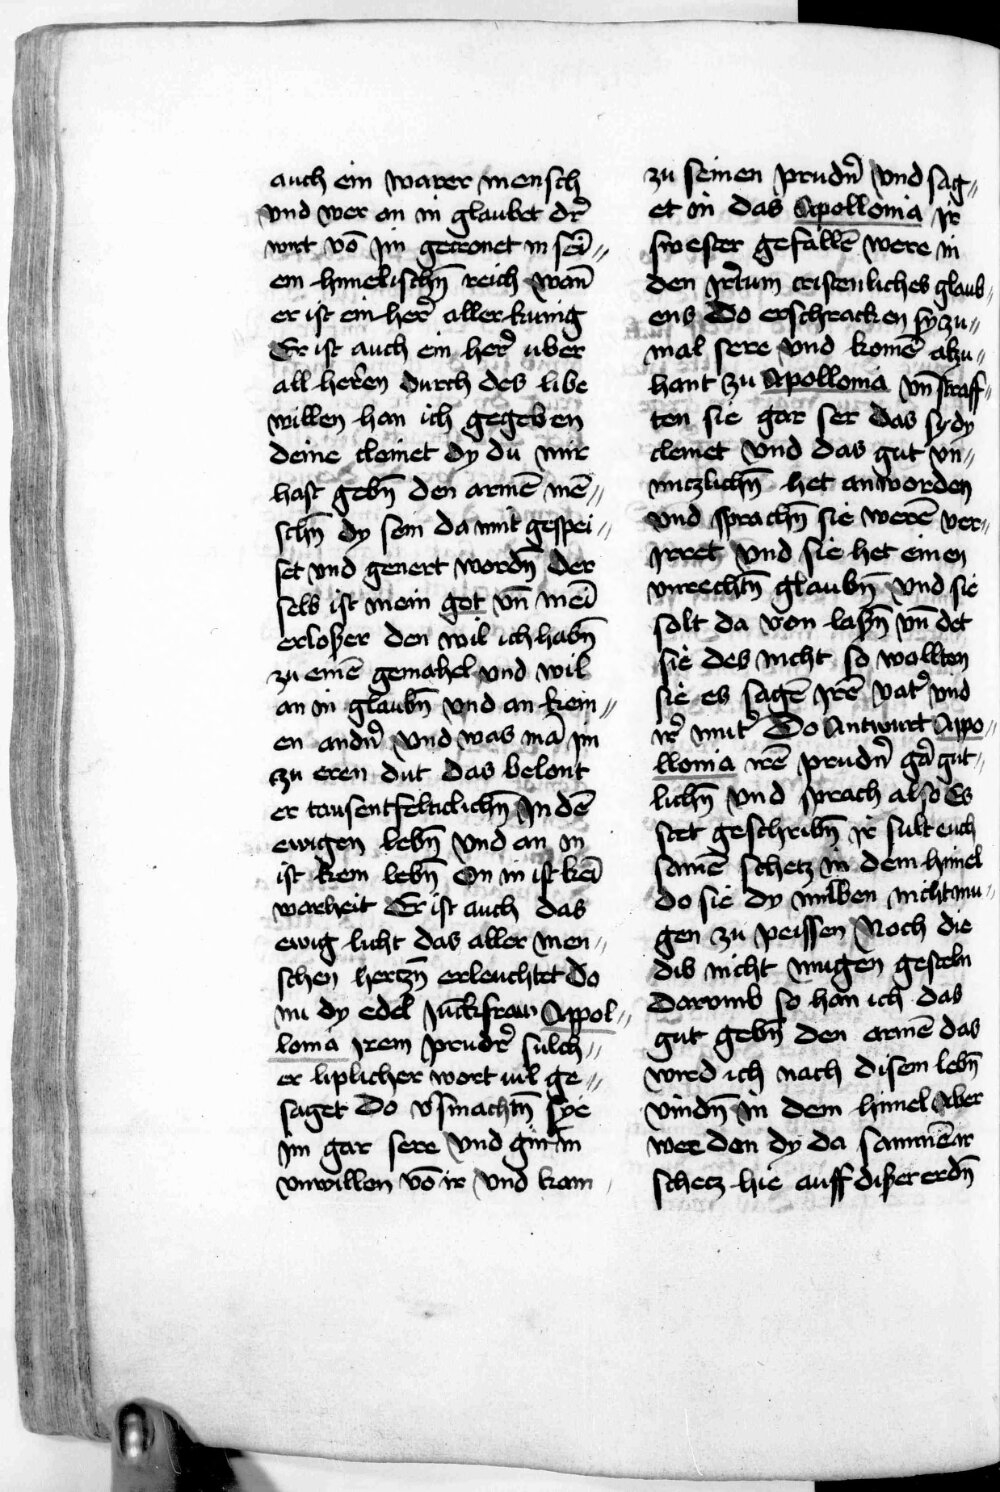 auch ein warer mensch
vnd wer an in glaubet dˢ
wirt võ im gecronet in seī„
em himelischn̄ reich wan̄
er ist ein herˢ aller kunig
Er ist auch ein herˢ uber
all herˢen durch des libe
willen han ich gegeben
deine cleinet dy du mir
hast gebn̄ den armē mē„
schn̄ dy sein da mit gespei„
set vnd genert wordn̄ der
selb ist mein got vn̄ meī
erloßer den wil ich habn̄
zu einē gemahel vnd wil
an in glaubn̄ vnd an kein„
en andn̄ vnd was mā im
czu eren dut das belont
er tausentfelticlichn̄ In dē
ewigen lebn̄ vnd an in
ist kein lebn̄ On in ist keī
warheit Er ist auch das
ewig licht das aller men„
schen hertzn̄ erleuchtet Do
nu dy edel Juckfraw Appol„
lonia irem prudrˢ sulch„
er liplicher wort vil ge„
saget Do vˢsmachtn̄ sye
im gar sere vnd gin in
vnwillen võ ir vnd kam
zu seinen prudn̄ vnd sag„
et in das Apollonia ir
swester gefallē were in
den irˢtum cristenliches glaub„
ens Do erschracken sy czu„
mal sere vnd komē alzu„
hant zu Apollonia vn̄ straff„
ten sie gar ser das sy dy
cleinet vnd das gut vn„
nutzlichn̄ het anworden
vnd sprachn̄ sie werē ver„
irret vnd sie het einen
vnrechtn̄ glaubn̄ vnd sie
solt da von laßn̄ vn̄ det
sie des nicht so wollten
sie es sagē irē vatˢ vnd
irˢ mutˢ Do Antwurt Appo„
llonia irē prudn̄ gā gut„
lichn̄ vnd sprach also Es
stet geschribn̄ ir sult euch
samē schetz in dem himel
do sie dy milben nicht mu„
gen zu peissen Noch die
dib nicht mugen gesteln
Darvmb so han ich das
gut gebn̄ den armē das
wird ich nach disem lebn̄
vindn̄ in dem himel Aber
wee den dy da sammē ir
schetz hie auff dißer erdn̄